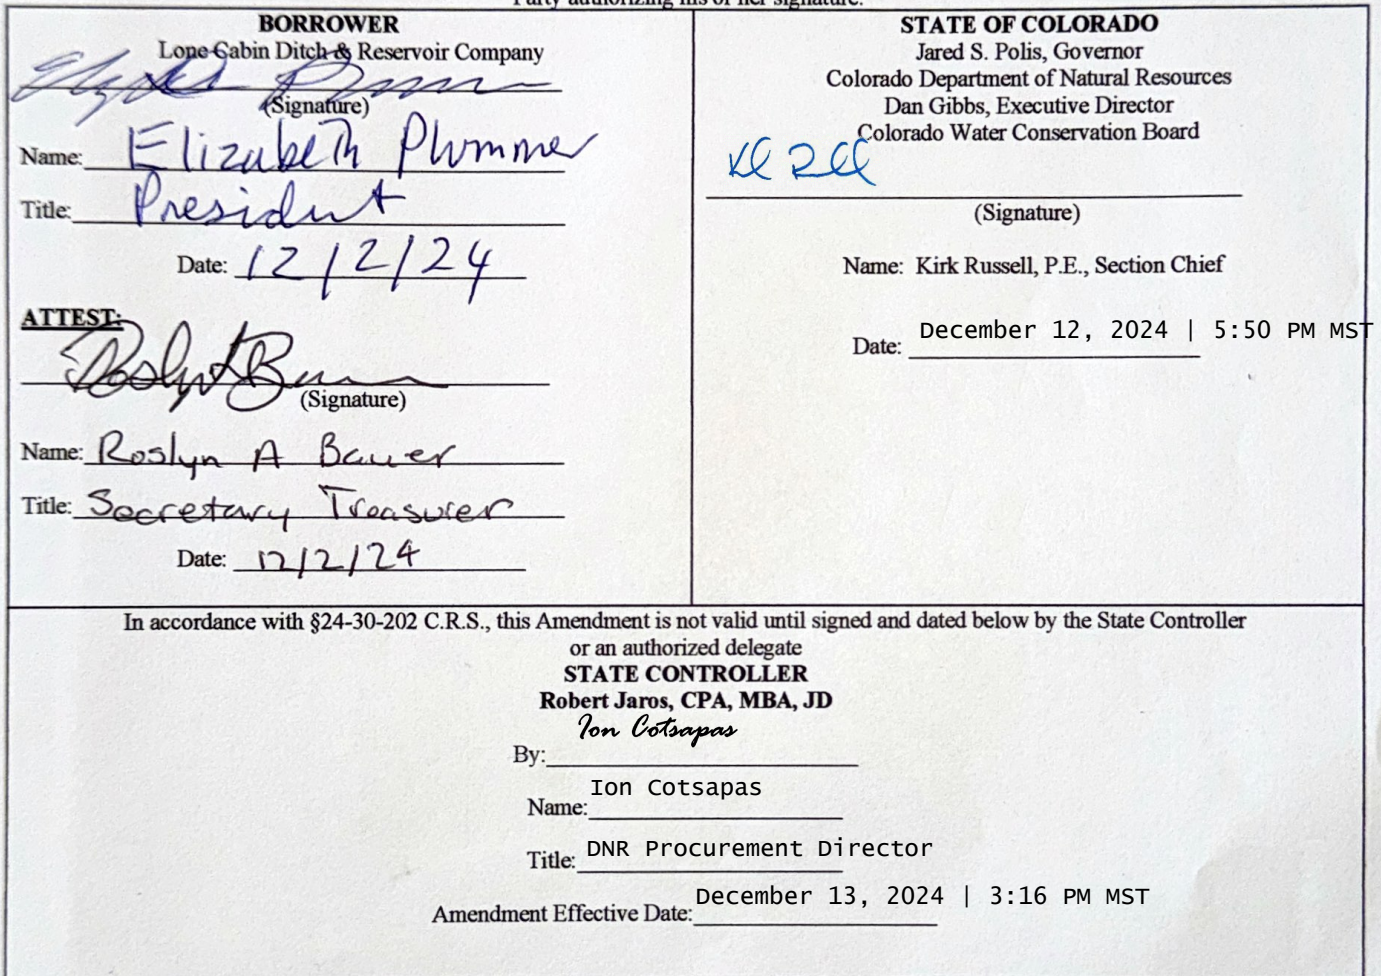 Party authorizing his or her signature.
BORROWER
Lone Cabin Ditch & Reservoir Company
(Signature)
Name: Elizabeth Plummer
Title: President
Date: 12/2/24
ATTEST:
(Signature)
Name: Roslyn A Bauer
Title: Secretary Treasurer
Date: 12/2/24
STATE OF COLORADO
Jared S. Polis, Governor
Colorado Department of Natural Resources
Dan Gibbs, Executive Director
Colorado Water Conservation Board
(Signature)
Name: Kirk Russell, P.E., Section Chief
Date: December 12, 2024 | 5:50 PM MST
In accordance with §24-30-202 C.R.S., this Amendment is not valid until signed and dated below by the State Controller
or an authorized delegate
STATE CONTROLLER
Robert Jaros, CPA, MBA, JD
By: Ion Cotsapas
Name: Ion Cotsapas
Title: DNR Procurement Director
Amendment Effective Date: December 13, 2024 | 3:16 PM MST